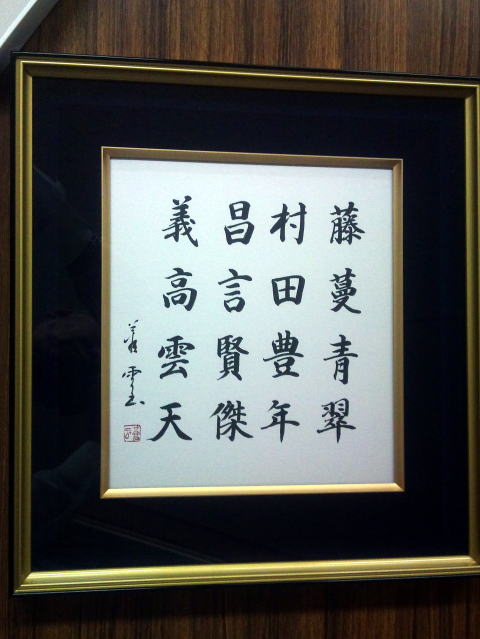 藤蔓青翠
村田豊年
昌言賢傑
義高雲天